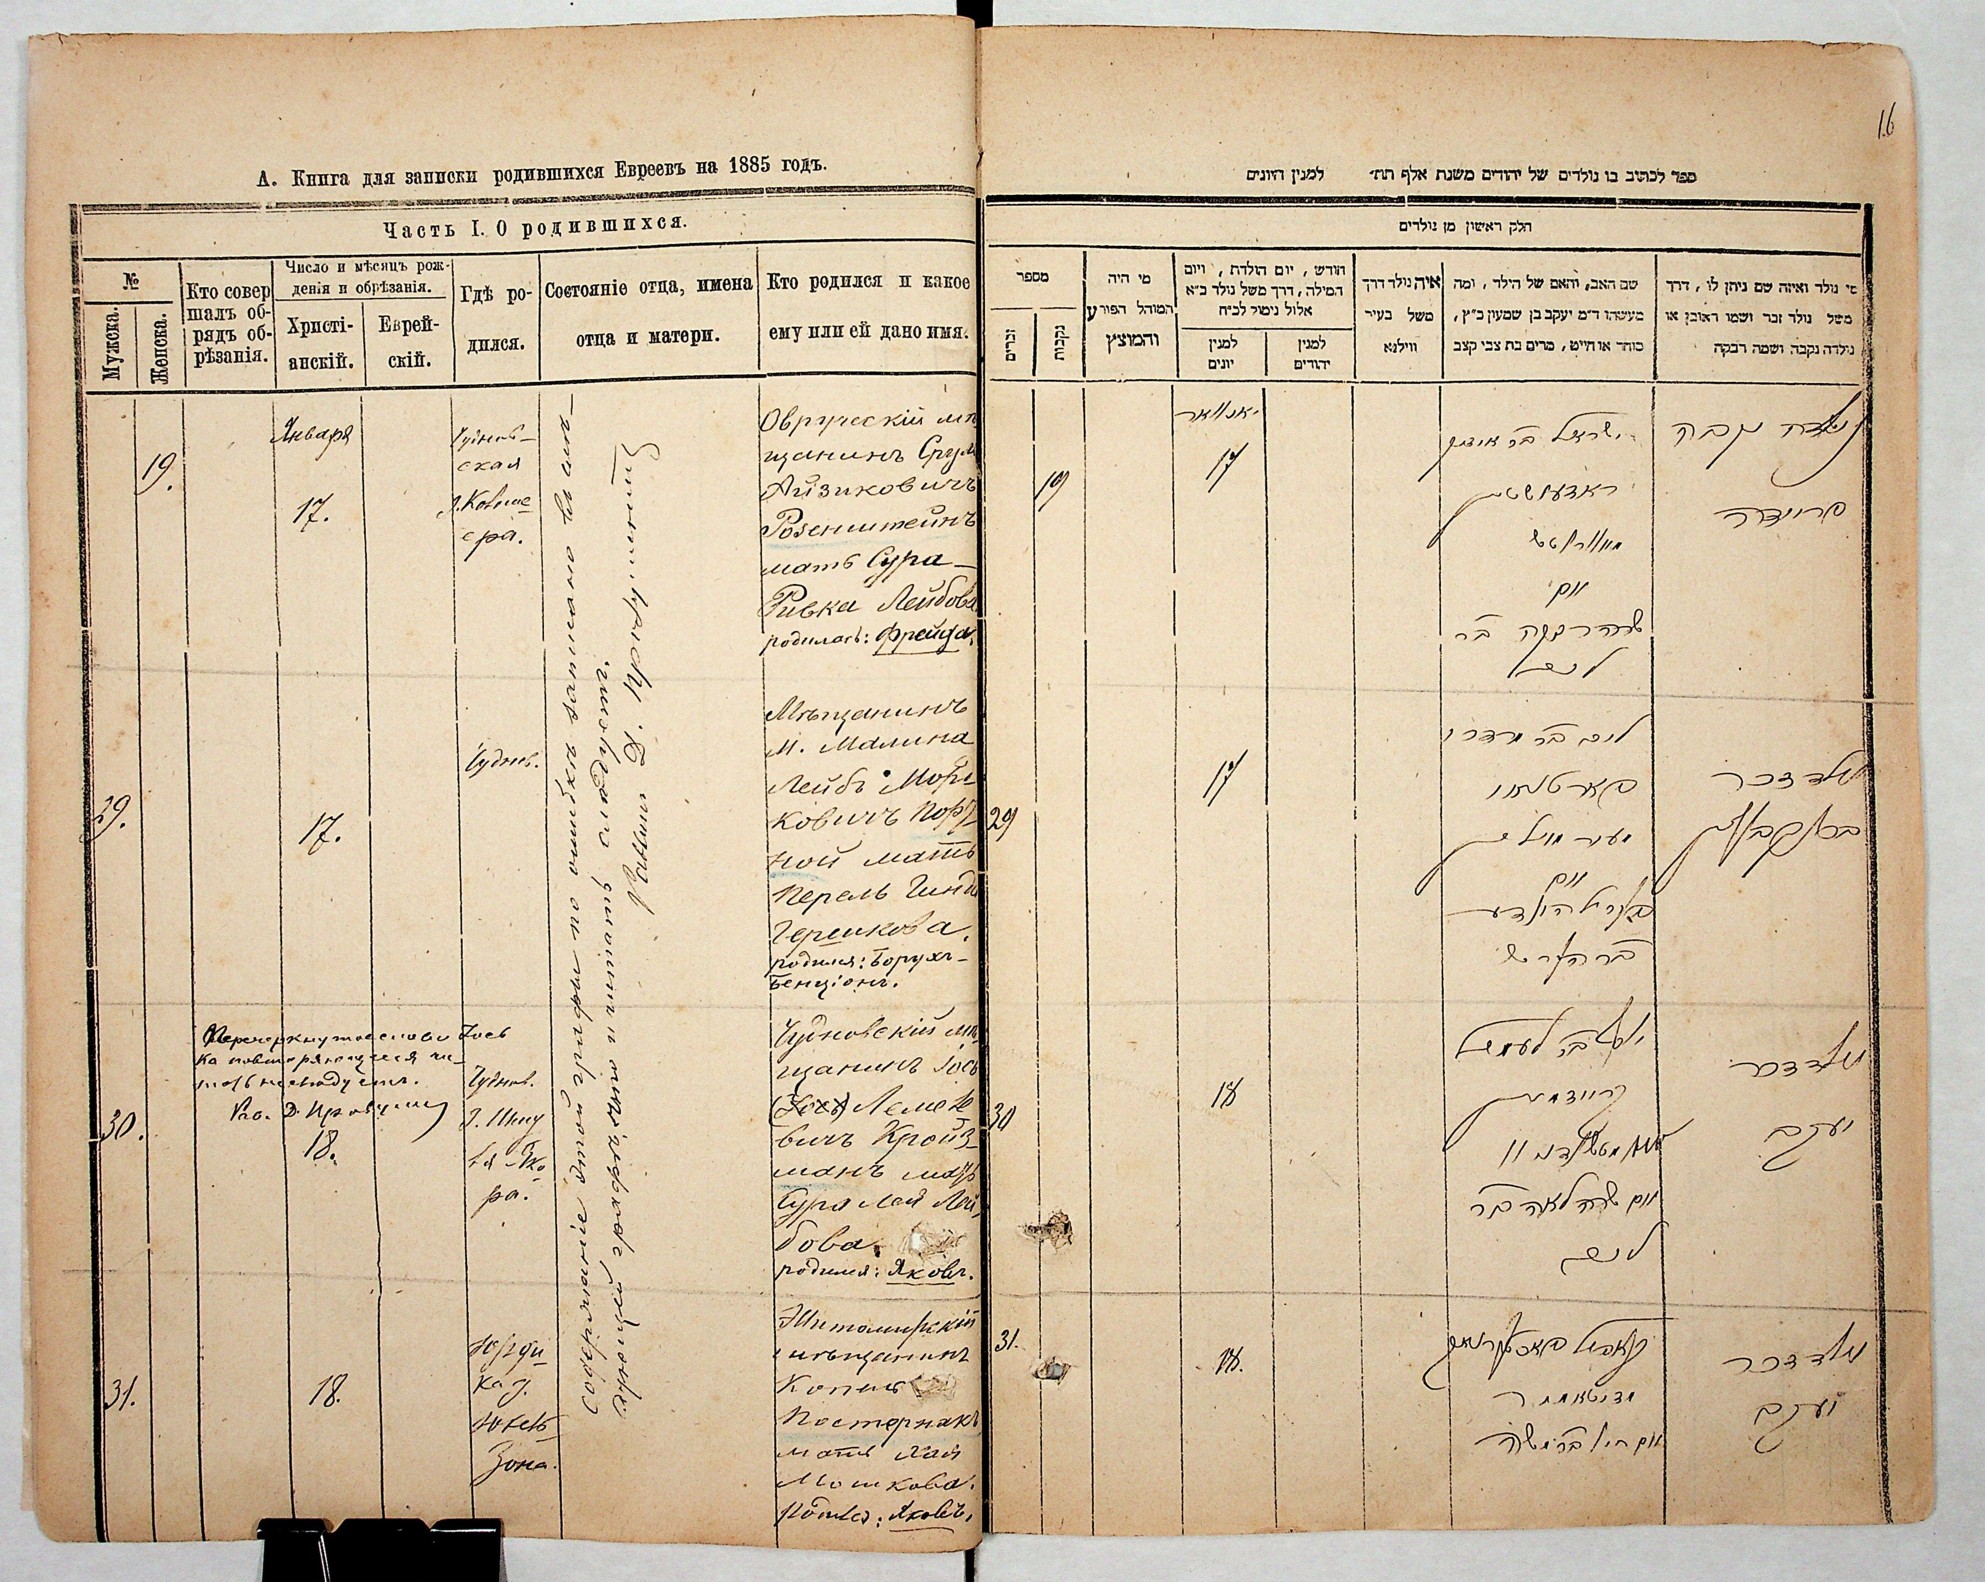 16
А. Книга для записки родившихся Евреевъ на 1885 годъ.
Часть I. О родившихся.
№
Мужска.
Женска.
Кто совер
шалъ об-
рядъ об-
рѣзанія.
Число и мѣсяцъ рож-
денія и обрѣзанія.
Христі-
анскій.
Еврей-
скій.
Гдѣ ро-
дился.
Состояніе отца, имена
отца и матери.
Кто родился и какое
ему или ей дано имя.
19.
Января
17.
Чуднов-
ская
ера.
Овручскій мѣ
щанинъ Сруль
Айзиковичъ
Розенштейнъ
мать Сура-
Ривка Лейбова
родилась: Фрейда.
29.
17.
Чудновъ.
Мѣщанинъ
м. Малина
Лейбъ Морд-
ковичъ Порт-
ной мать
Перель Гинда
Гершкова.
родился: Борухъ-
Бенціонъ.
Перечеркнутое слово Іось
какъ повторяющееся чи-
тать не слѣдуетъ.
30.
18.
Чуднов.
ра.
Чудновскій мѣ
щанинъ Іось
(Іось) Лемко
вичъ Кройз-
манъ мать
Сура Лея Лей-
бова.
родился: Яковъ.
31.
18.
Юрди-
ка
зона.
Житомирскій
мѣщанинъ
Копель
Постернакъ
мать Хая
Мошкова.
Родился: Яковъ.
Содержаніе этой графы по ошибкѣ записано въ слѣ-
дующей графѣ, почему и читать слѣдуетъ.
Раввинъ Д.
ספר לכתוב בו נולדים של יהודים משנת אלף תת׳ למנין היונים
חלק ראשון מן נולדים
מספר
זכרים
נקבות
מי היה
המוהל הפורע
והמוצץ
חודש, יום הולדת, ויום
המילה, דרך משל נולד כ״א
אלול נימול לכ״ח
למנין
יונים
למנין
יהודים
איה נולד דרך
משל בעיר
ווילנא
שם האב, והאם של הילד, ומה
מעשהו ד״מ יעקב בן שמעון כ״ץ,
סוחר או חייט, מרים בת צבי קצב
מי נולד ואיזה שם ניתן לו, דרך
משל נולד זכר ושמו ראובן או
נולדה נקבה ושמה רבקה
19
יאנואר
17
ישראל בר אייזיק
ראזענשטיין
ואם
שרה רבקה בר
לייב
נולדה נקבה
פריידה
29
17
לייב בר מרדכי
ואם
בר הערש
נולד זכר
30
18
קרויזמאן
ואם שרה לאה בר
לייב
נולד זכר
יעקב
31.
18.
קאפיל פאסטערנאק
ואם חיה בר משה
נולד זכר
יעקב